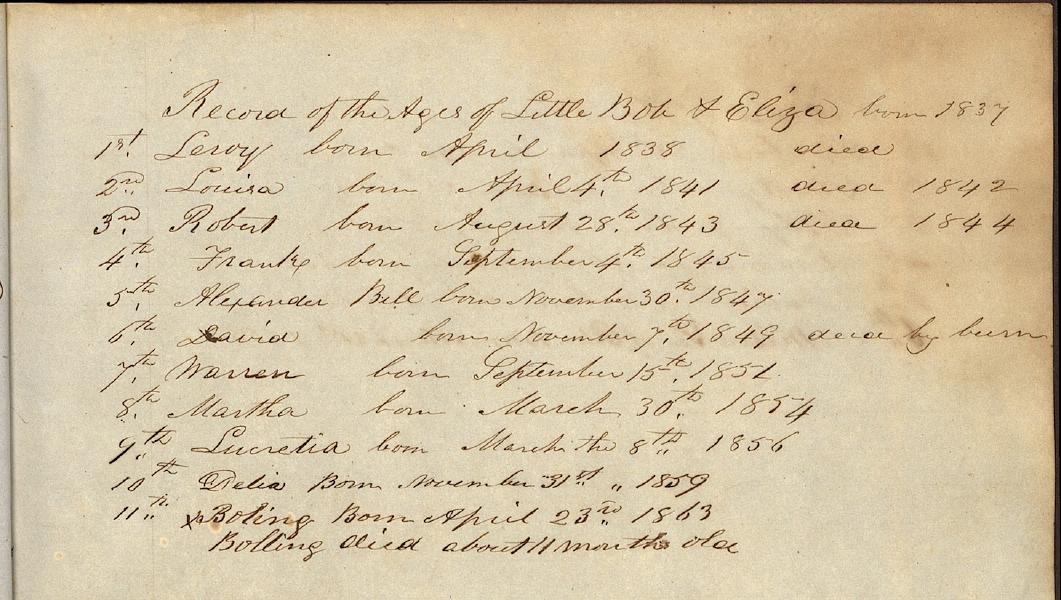 Record of the Ages of Little Bob & Eliza born 1837
1st. Leroy born April 1838 died
2nd. Louisa born April 4th. 1841 died 1842
3rd. Robert born August 28th. 1843 died 1844
4th. Frank born September 4th. 1845
5th. Alexander Bell born November 30th. 1847
6th. David born November 7th. 1849 died by burn
7th. Warren born September 15th. 1851
8th. Martha born March 30th. 1854
9th Lucretia born March the 8th 1856
10th Delia Born November 31st „ 1859
11th. x Boling Born April 23rd 1863
Bolling died about 11 months old